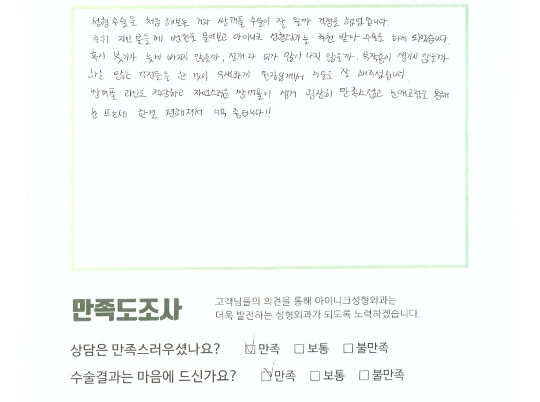 성형수술을 처음 해보는 거라 쌍꺼풀 수술이 잘 될까 걱정을 했었습니다.
주위 지인분들께 병원도 물어보고 아이니크 성형외과를 추천 받아 수술도 하게 되었습니다.
혹시 붓기가 늦게 빠지진 않을까, 실제라 티가 많이 나지 않을까, 부작용이 생기지 않을까
하는 많은 걱정들을 한 것이 무색하게 원장님께서 수술도 잘 해주셨습니다.
쌍꺼풀 라인도 적당하고 자연스러운 쌍꺼풀이 생겨 굉장히 만족스럽고 눈매교정을 통해
눈 뜨는데 한결 편해져서 너무 좋습니다!!
만족도조사
고객님들의 의견을 통해 아이니크성형외과는
더욱 발전하는 성형외과가 되도록 노력하겠습니다.
상담은 만족스러우셨나요? ☑ 만족 □ 보통 □ 불만족
수술결과는 마음에 드신가요? ☑ 만족 □ 보통 □ 불만족